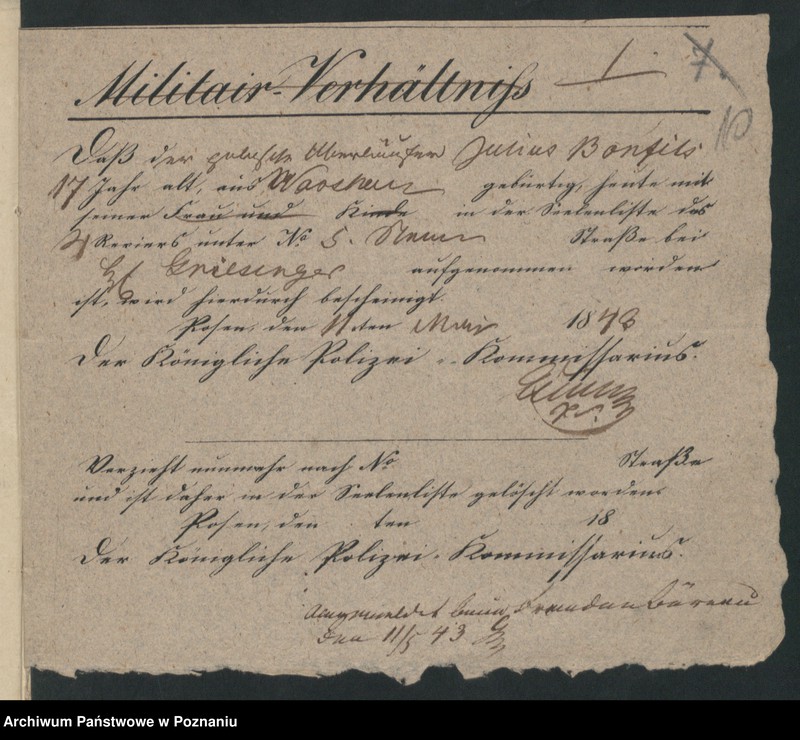 Militair-Verhältniß 1. 7.
10
Daß der polnische Überläufer Julius Bonfils
17 Jahr alt, aus Warschau gebürtig, heute mit
seiner Frau und Kinde in der Seelenliste des
4 Reviers unter No 5. Straße bei
Griesinger aufgenommen worden
ist, wird hierdurch bescheinigt.
Posen, den 11ten Mai 1843
Der Königliche Polizei-Kommissarius.
Verzieht nunmehr nach No Straße
und ist daher in der Seelenliste gelöscht worden.
Posen, den ten 18
Der Königliche Polizei-Kommissarius.
Angemeldet beim Fremden Büreau
den 11/5 43
Archiwum Państwowe w Poznaniu